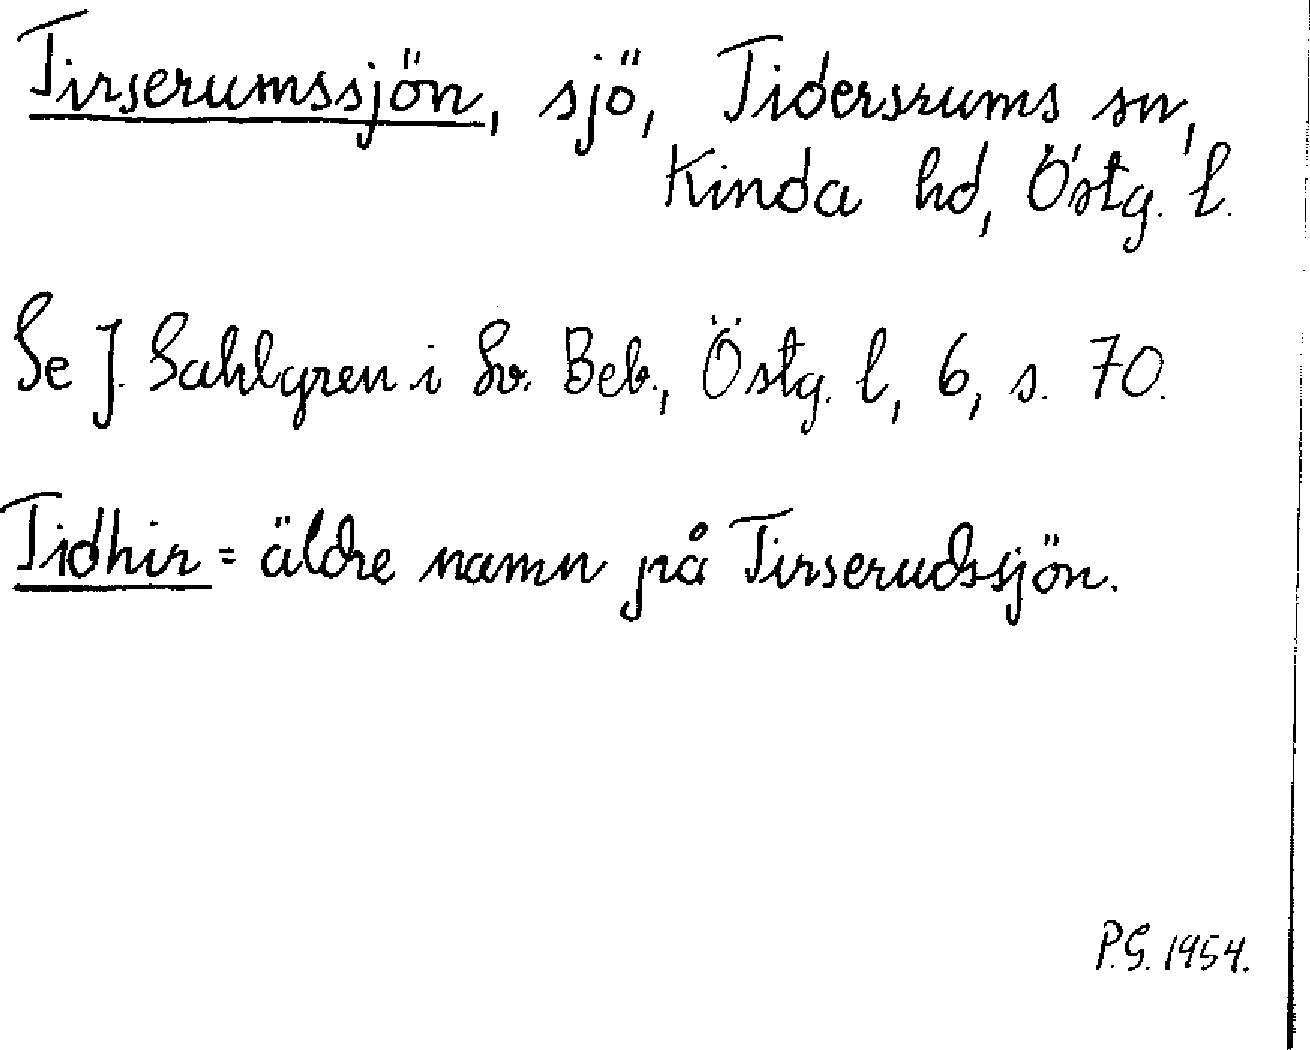 Tirserumssjön, sjö, Tidersrums sn,
Kinda hd, Östg. l.
Se J. Sahlgren i Sv. Beb., Östg. l, 6, s. 70.
Tidhir = äldre namn på Tirserudssjön.
P.G. 1954.